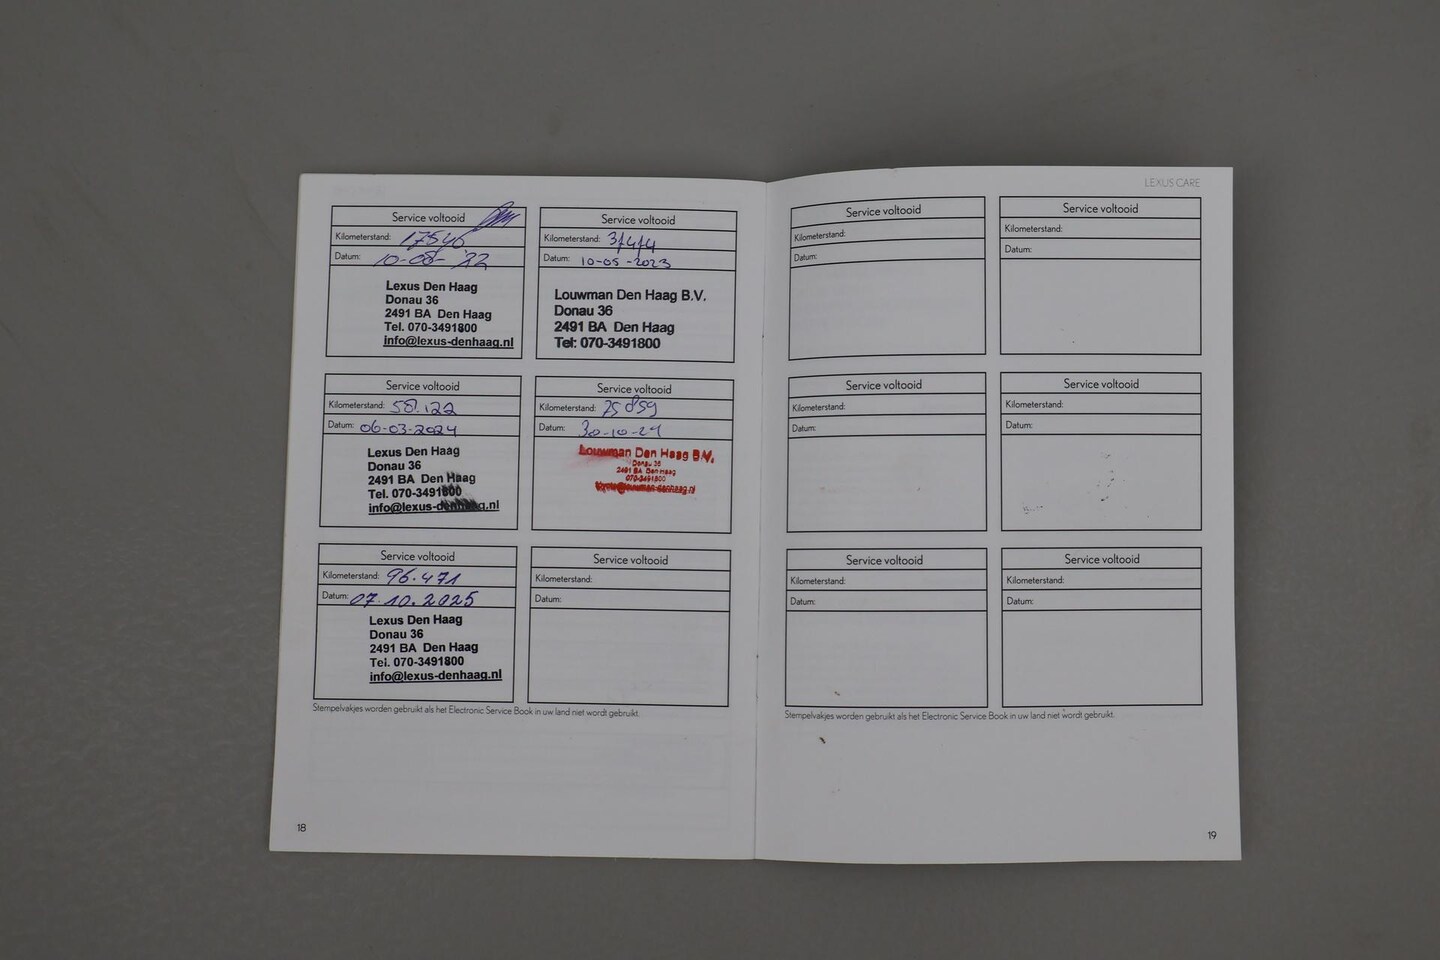 Service voltooid
Kilometerstand: 17546
Datum: 10-08-'22
Lexus Den Haag
Donau 36
2491 BA Den Haag
Tel. 070-3491800
info@lexus-denhaag.nl
Service voltooid
Kilometerstand:
Datum: 10-05-2023
Louwman Den Haag B.V.
Donau 36
2491 BA Den Haag
Tel: 070-3491800
Service voltooid
Kilometerstand: 58.122
Datum: 06-03-2024
Lexus Den Haag
Donau 36
2491 BA Den Haag
Tel. 070-3491800
info@lexus-denhaag.nl
Service voltooid
Kilometerstand: 75859
Datum: 30-10-24
Louwman Den Haag B.V.
Donau 36
2491 BA Den Haag
070-3491800
Service voltooid
Kilometerstand: 96.471
Datum: 07.10.2025
Lexus Den Haag
Donau 36
2491 BA Den Haag
Tel. 070-3491800
info@lexus-denhaag.nl
Service voltooid
Kilometerstand:
Datum:
Stempelvakjes worden gebruikt als het Electronic Service Book in uw land niet wordt gebruikt.
18
LEXUS CARE
Service voltooid
Kilometerstand:
Datum:
Service voltooid
Kilometerstand:
Datum:
Service voltooid
Kilometerstand:
Datum:
Service voltooid
Kilometerstand:
Datum:
Service voltooid
Kilometerstand:
Datum:
Service voltooid
Kilometerstand:
Datum:
Stempelvakjes worden gebruikt als het Electronic Service Book in uw land niet wordt gebruikt.
19